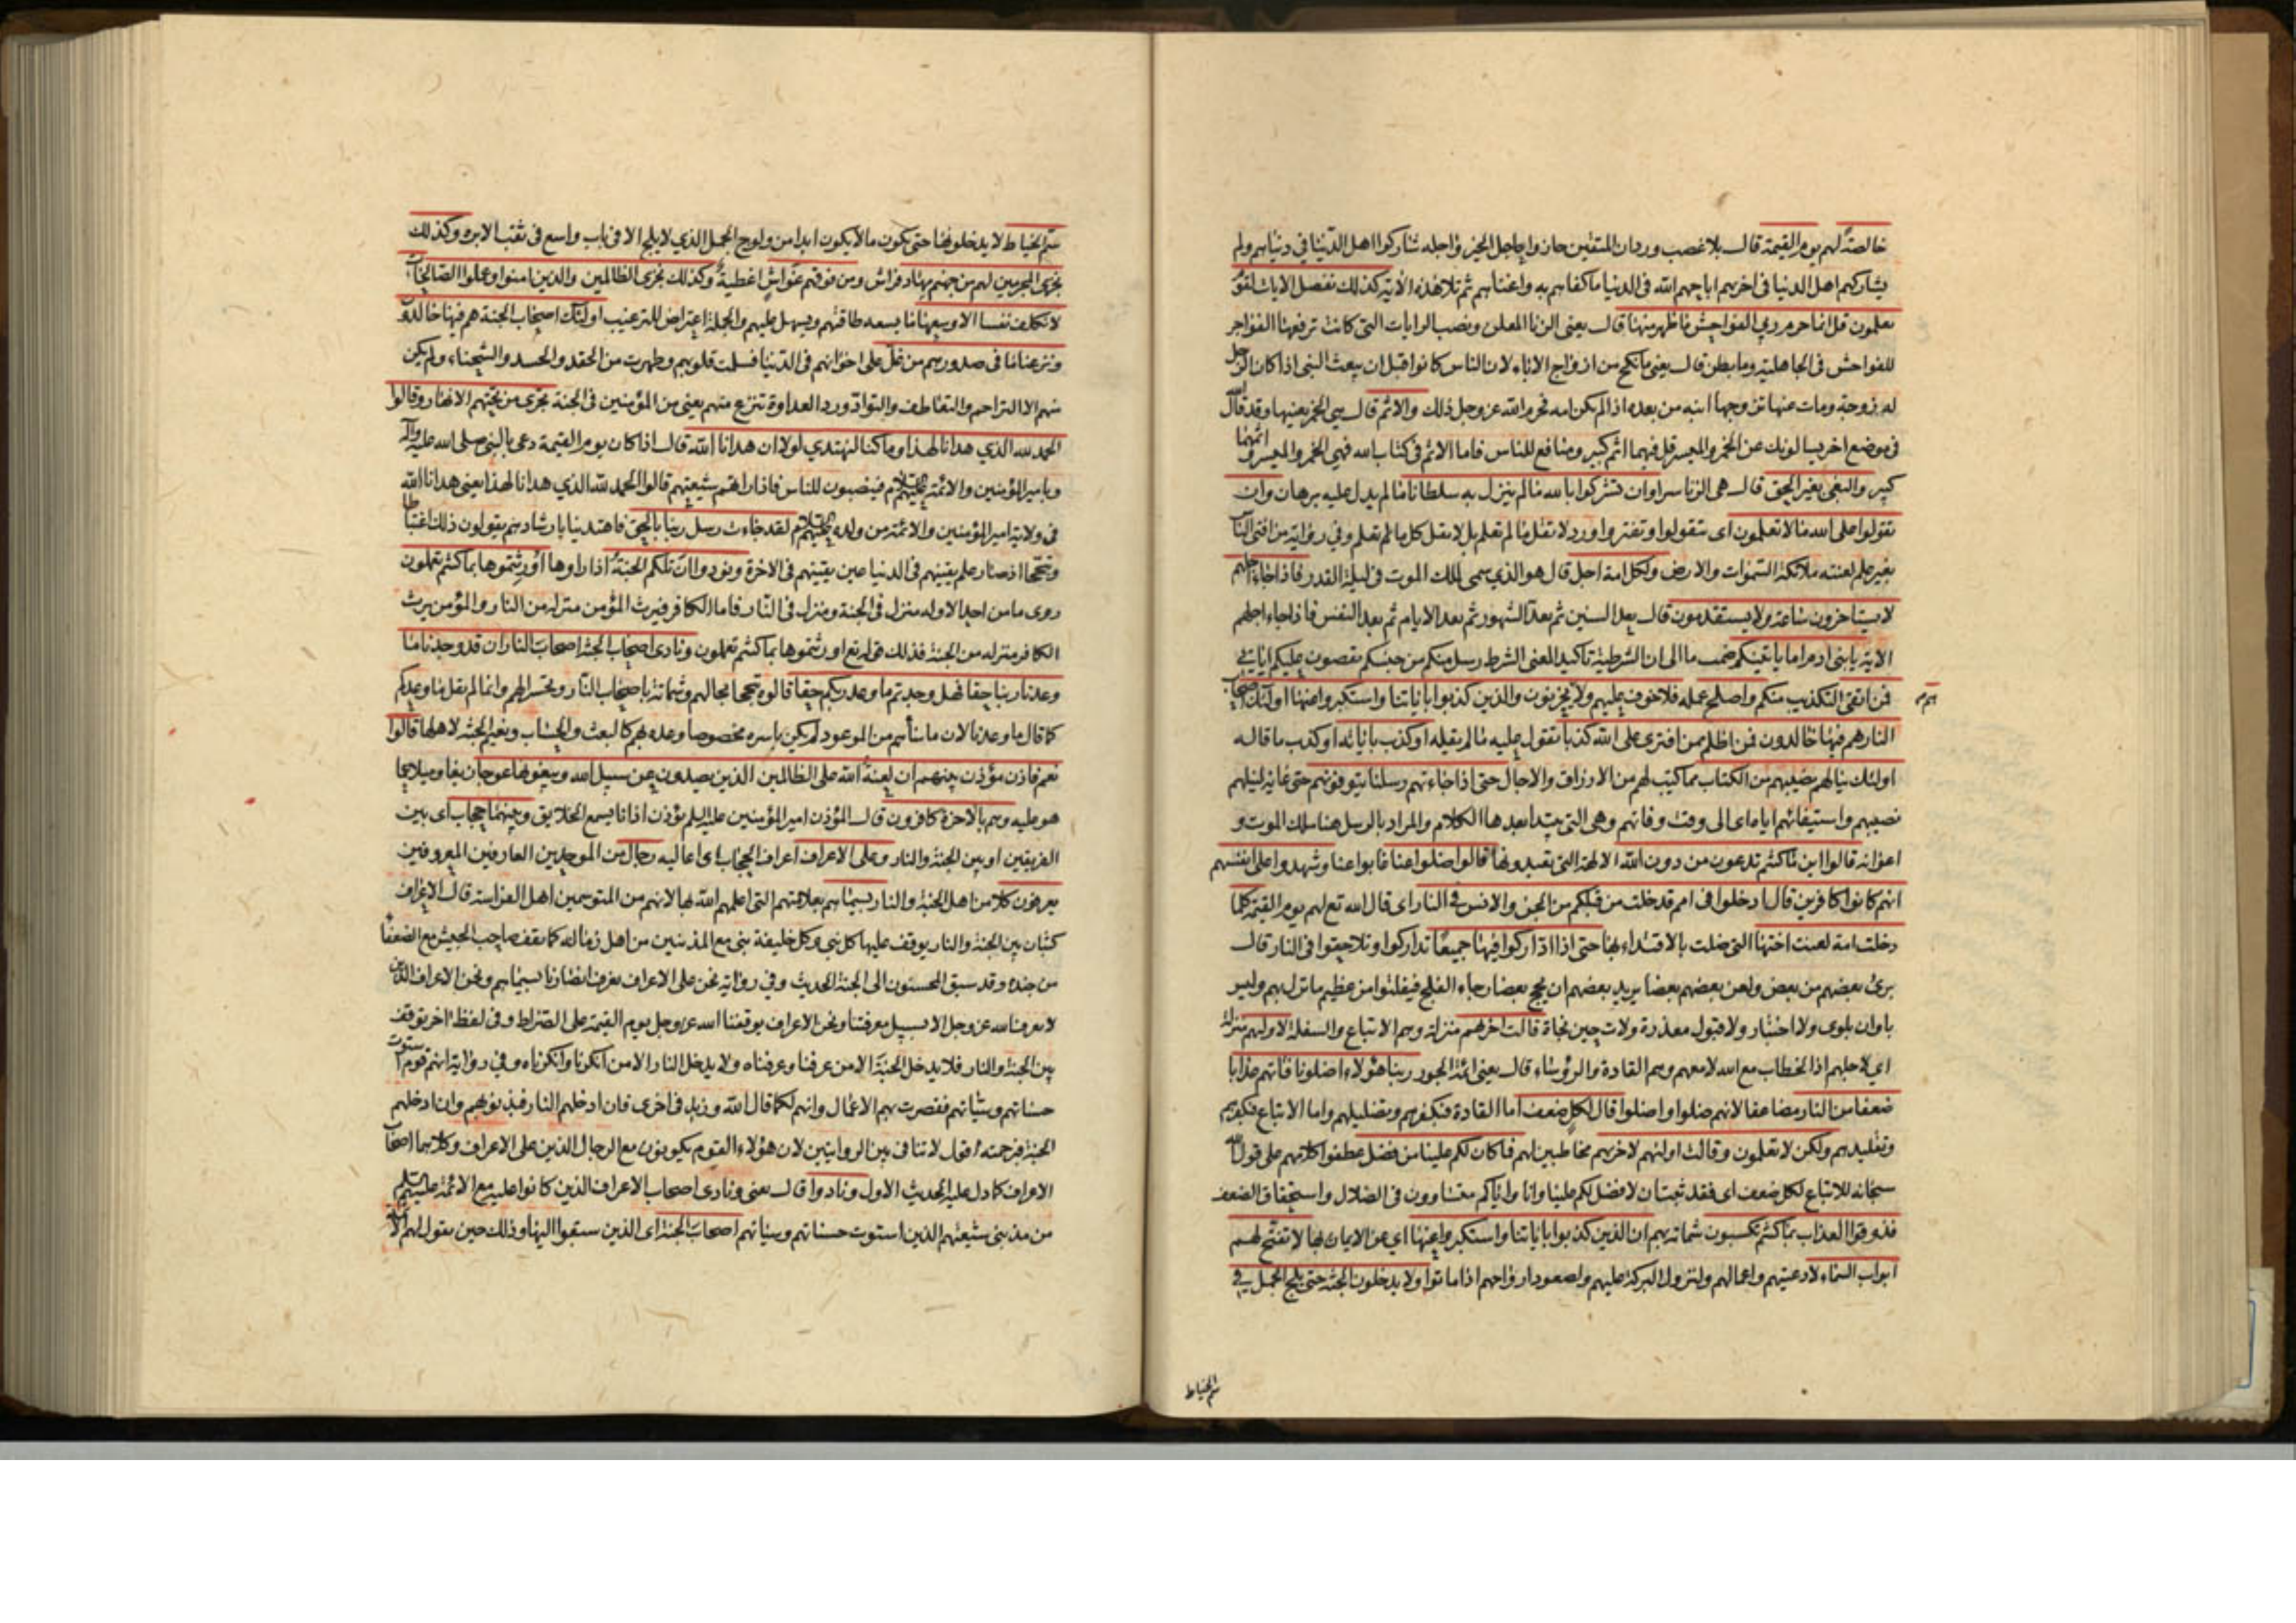 خالصة لهم يوم القيمة قال بلا غصب وردان المتقين حازوا عاجل الخير واجله شاركوا اهل الدنيا في دنياهم ولم
يشاركهم اهل الدنيا في اخرتهم اباحهم الله في الدنيا ما كفاهم به واغناهم ثم تلا هذه الاية كذلك نفصل الايات لقوم
يعلمون قل انما حرم ربي الفواحش ما ظهر منها قال يعني الزنا المعلن ونصب الرايات التي كانت ترفعها الفواجر
للفواحش في الجاهلية وما بطن قال يعني ما نكح من ازواج الاباء لان الناس كانوا قبل ان يبعث النبي اذا كان للرجل
له زوجة ومات عنها تزوجها ابنه من بعده اذا لم يكن امه فحرم الله عز وجل ذلك والاثم قال هي الخمر بعينها وقد قال الله
في موضع اخر يسالونك عن الخمر والميسر قل فيهما اثم كبير ومنافع للناس فاما الاثم في كتاب الله فهي الخمر والميسر واثمهما
كبير والبغي بغير الحق قال هي الزنا سرا وان تشركوا بالله ما لم ينزل به سلطانا ما لم يدل عليه برهان وان
تقولوا على الله ما لا تعلمون اى تتقولوا وتفتروا ورد لا تقل ما لم تعلم بل لا تقل كل ما لم تعلم وفي رواية من افتى الناس
بغير علم لعنته ملائكة السموات والارض ولكل امة اجل قال هو الذي سمى لملك الموت في ليلة القدر فاذا جاء اجلهم
لا يستاخرون ساعة ولا يستقدمون قال بعد السنين ثم بعد الشهور ثم بعد الايام ثم بعد النفس فاذا جاء اجلهم
الاية يا بنى ادم اما ياتينكم ضمت ما الى ان الشرطية تاكيدا لمعنى الشرط رسل منكم من جنسكم يقصون عليكم اياتي
فمن اتقى التكذيب منكم واصلح عمله فلا خوف عليهم ولا هم يحزنون والذين كذبوا باياتنا واستكبروا عنها اولئك اصحاب
النار هم فيها خالدون فمن اظلم ممن افترى على الله كذبا تقول عليه ما لم يقله او كذب باياته او كذب ما قاله
اولئك ينالهم نصيبهم من الكتاب مما كتب لهم من الارزاق والاجال حتى اذا جاءتهم رسلنا يتوفونهم حتى غاية لنيلهم
نصيبهم واستيفائهم اياه اى الى وقت وفاتهم وهي التي يبتدا بعدها الكلام والمراد بالرسل هنا ملك الموت و
اعوانه قالوا اين ما كنتم تدعون من دون الله الالهة التي تعبدونها قالوا ضلوا عنا غابوا عنا وشهدوا على انفسهم
انهم كانوا كافرين قال ادخلوا في امم قد خلت من قبلكم من الجن والانس في النار اى قال الله تع لهم يوم القيمة كلما
دخلت امة لعنت اختها التي ضلت بالاقتداء بها حتى اذا اداركوا فيها جميعا تداركوا وتلاحقوا في النار قال
برئ بعضهم من بعض ولعن بعضهم بعضا يريد بعضهم ان يحج بعضا رجاء الفلج فيفلتوا من عظيم ما نزل بهم وليس
باوان بلوى ولا اختبار ولا قبول معذرة ولات حين نجاة قالت اخرهم منزلة وهم الاتباع والسفلة لاولهم منزلة
اي لاجلهم اذ الخطاب مع الله لا معهم وهم القادة والرؤساء قال يعني ائمة الجور ربنا هؤلاء اضلونا فاتهم عذابا
ضعفا من النار مضاعفا لانهم ضلوا واضلوا قال لكل ضعف اما القادة فبكفرهم وتضليلهم واما الاتباع فبكفرهم
وتقليدهم ولكن لا تعلمون وقالت اولهم لاخرهم مخاطبين لهم فما كان لكم علينا من فضل عطفوا كلامهم على قول الله
سبحانه للاتباع لكل ضعف اى فقد ثبت ان لا فضل لكم علينا وانا واياكم متساوون في الضلال واستحقاق الضعف
فذوقوا العذاب بما كنتم تكسبون شماتة بهم ان الذين كذبوا باياتنا واستكبروا عنها اي عن الايمان بها لا تفتح لهم
ابواب السماء لادعيتهم واعمالهم ولنزول البركة عليهم ولصعود ارواحهم اذا ماتوا ولا يدخلون الجنة حتى يلج الجمل في
سم الخياط
سم الخياط لا يدخلونها حتى يكون ما لا يكون ابدا من ولوج الجمل الذي لا يلج الا في باب واسع في ثقب الابرة وكذلك
نجزى المجرمين لهم من جهنم مهاد فراش ومن فوقهم غواش اغطية وكذلك نجزى الظالمين والذين امنوا وعملوا الصالحات
لا نكلف نفسا الا وسعها ما يسعه طاقتهم ويسهل عليهم والجملة اعتراض للترغيب اولئك اصحاب الجنة هم فيها خالدون
ونزعنا ما في صدورهم من غل على اخوانهم في الدنيا فسلمت قلوبهم وطهرت من الحقد والحسد والشحناء ولم يكن
منهم الا التراحم والتعاطف والتواد ورد العداوة تنزع منهم يعني من المؤمنين في الجنة تجرى من تحتهم الانهار وقالوا
الحمد لله الذي هدانا لهذا وما كنا لنهتدي لولا ان هدانا الله قال اذا كان يوم القيمة دعى بالنبي صلى الله عليه وآله
وبامير المؤمنين والائمة عليهم السلام فينصبون للناس فاذا راهم شيعتهم قالوا الحمد لله الذي هدانا لهذا يعني هدانا الله
في ولاية امير المؤمنين والائمة من ولده عليهم السلام لقد جاءت رسل ربنا بالحق فاهتدينا بارشادهم يقولون ذلك اغتباطا
وتبجحا اذ صار علم يقينهم في الدنيا عين يقينهم في الاخرة ونودوا ان تلكم الجنة اذا راوها اورثتموها بما كنتم تعملون
روى ما من احد الا وله منزل في الجنة ومنزل في النار فاما الكافر فيرث المؤمن منزله من النار والمؤمن يرث
الكافر منزله من الجنة فذلك قوله تع اورثتموها بما كنتم تعملون ونادى اصحاب الجنة اصحاب النار ان قد وجدنا ما
وعدنا ربنا حقا فهل وجدتم ما وعد ربكم حقا قالوه تبجحا بحالهم وشماتة باصحاب النار وتحسرا لهم وانما لم يقل ما وعدكم
كما قال ما وعدنا لان ما ساءهم من الموعود لم يكن باسره مخصوصا وعده بهم كالبعث والحساب ونعيم الجنة لاهلها قالوا
نعم فاذن مؤذن بينهم ان لعنة الله على الظالمين الذين يصدون عن سبيل الله ويبغونها عوجا زيغا وميلا عما
هو عليه وهم بالاخرة كافرون قال المؤذن امير المؤمنين عليه السلم يؤذن اذانا يسمع الخلايق وبينهما حجاب اى بين
الفريقين او بين الجنة والنار وعلى الاعراف اعراف الحجاب اى اعاليه رجال من الموحدين العارفين المعروفين
يعرفون كلا من اهل الجنة والنار بسيماهم بعلامتهم التي اعلمهم الله بها لانهم من المتوسمين اهل الفراسة قال الاعراف
كثبان بين الجنة والنار يوقف عليها كل نبي وكل خليفة نبي مع المذنبين من اهل زمانه كما يقف صاحب الجيش مع الضعفاء
من جنده وقد سبق المحسنون الى الجنة الحديث وفي رواية نحن على الاعراف نعرف انصارنا بسيماهم ونحن الاعراف الذين
لا يعرف الله عز وجل الا بسبيل معرفتنا ونحن الاعراف يوقفنا الله عز وجل يوم القيمة على الصراط وفي لفظ اخر نوقف
بين الجنة والنار فلا يدخل الجنة الا من عرفنا وعرفناه ولا يدخل النار الا من انكرنا وانكرناه وفي رواية انهم قوم استوت
حسناتهم وسيئاتهم فقصرت بهم الاعمال وانهم لكما قال الله وزيد في اخرى فان ادخلهم النار فبذنوبهم وان ادخلهم
الجنة فبرحمته اقول لا تنافى بين الروايتين لان هؤلاء القوم يكونون مع الرجال الذين على الاعراف وكلاهما اصحاب
الاعراف كما دل عليه الحديث الاول ونادوا قال يعني ونادى اصحاب الاعراف الذين كانوا عليه مع الائمة عليهم السلم
من مذنبى شيعتهم الذين استوت حسناتهم وسيئاتهم اصحاب الجنة اى الذين سبقوا اليها وذلك حين يقول لهم